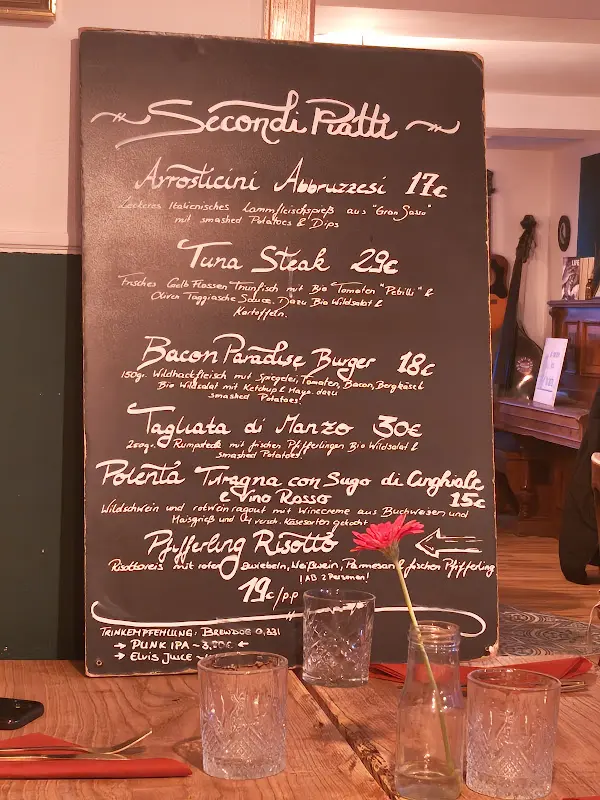 Secondi Piatti
Arrosticini Abbruzzesi 17€
Leckeres Italienisches Lammfleischspieß aus "Gran Sasso"
mit smashed Potatoes & Dips
Tuna Steak 29€
Frisches Gelb Flossen Thunfisch mit Bio Tomaten &
Oliven Taggiasche Sauce. Dazu Bio Wildsalat &
Kartoffeln.
Bacon Paradise Burger 18€
150gr. Wildhackfleisch mit Spiegelei, Tomaten, Bacon, Bergkäse
Bio Wildsalat mit Ketchup & Mayo. dazu
smashed Potatoes!
Tagliata di Manzo 30€
200gr. Rumpsteak mit frischen Pfifferlingen Bio Wildsalat &
smashed Potatoes!
Polenta Taragna con Sugo di Cinghiale
e Vino Rosso 15€
Wildschwein und rotwein ragout mit Wintcreme aus Buchweizen und
Maisgrieß und 4 versch. Käsesorten gekocht
Pfifferling Risotto
Risottoreis mit roter Zwiebeln, Weißwein, Parmesan & frischen Pfifferling
! AB 2 Personen!
19€/p.p
TRINKEMPFEHLUNG: BREWDOG 0,33l
→ PUNK IPA ~ 3,50€ ←
→ ELVIS JUICE ~
LIFE